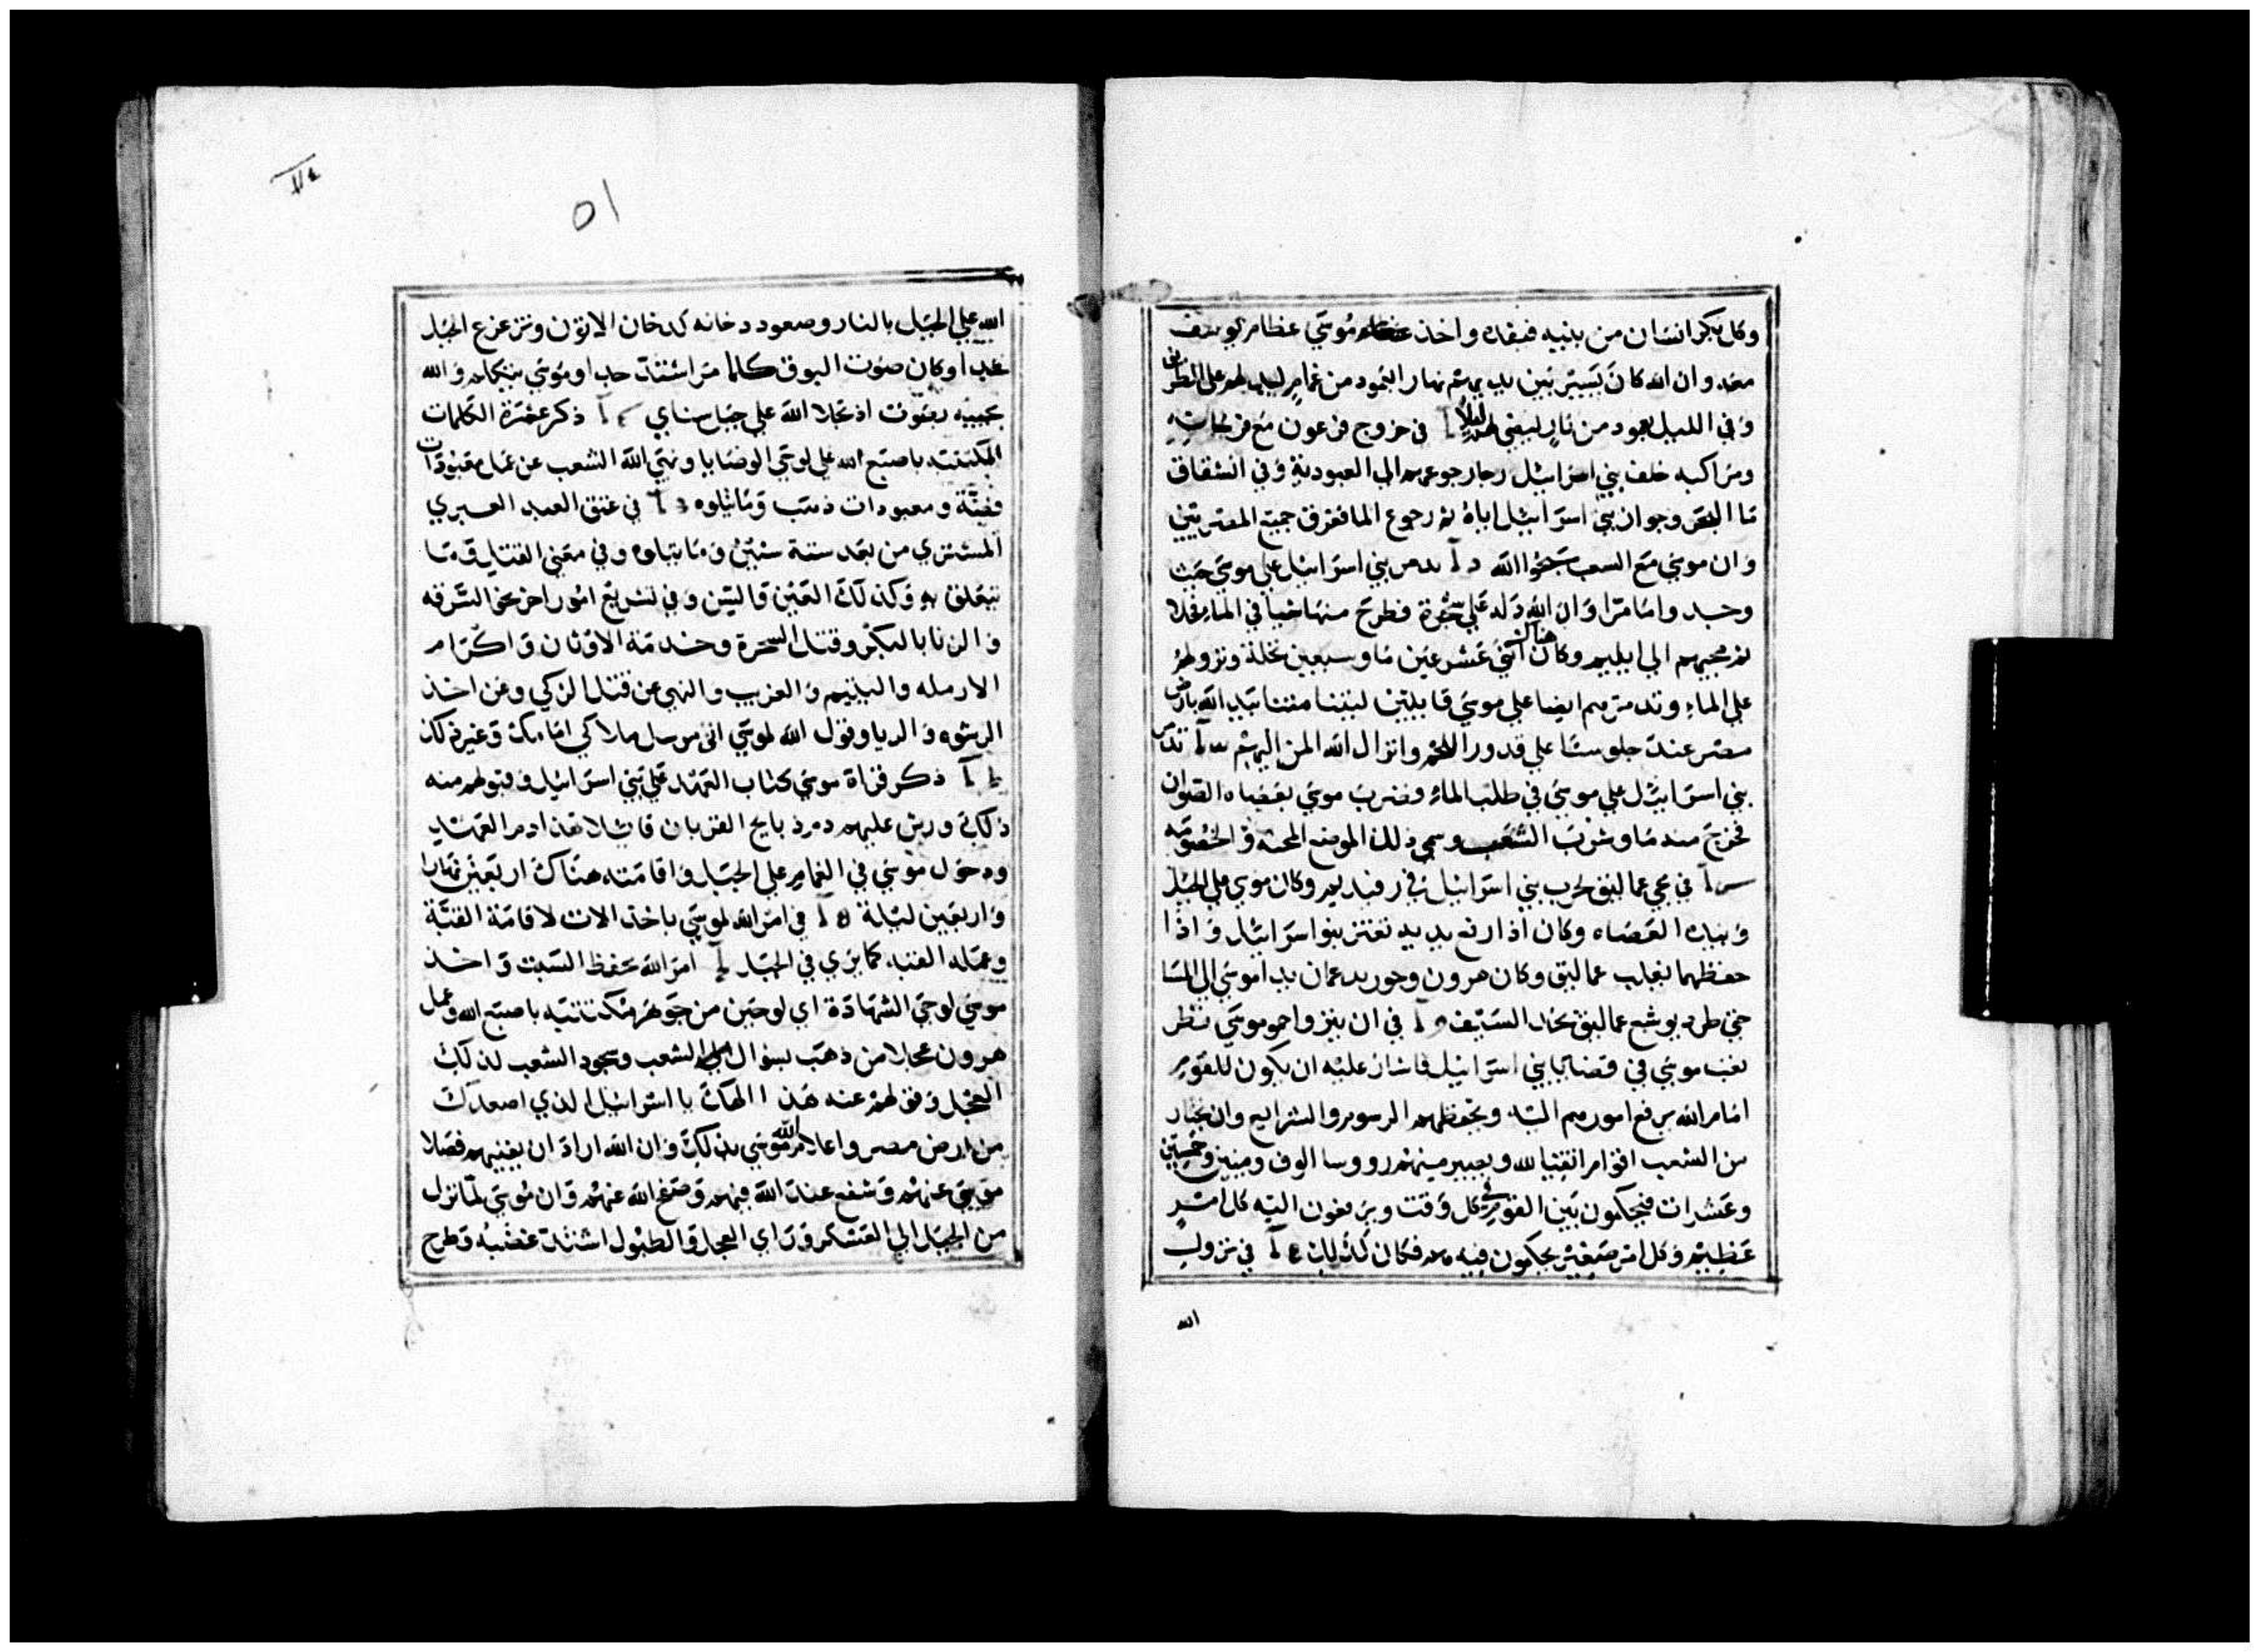 وكل بكر انسان من بنيه فيفده واخذ موسي عظام يوسف
معه وان الله كان يسير بين يديهم نهار ابعمود من غمام ليدلهم على الطريق
وفي الليل بعمود من نار ليضي لهم ليلا في خروج فرعون مع فرسانه
ومراكبه خلف بني اسراييل رجا رجوعهم الي العبودية وفي انشقاق
ما البحر وجواز بني اسراييل اياه ثم رجوع الما فغرق جميع المصريين
وان موسي مع الشعب سبحوا الله تدمر بني اسراييل علي موسي حيث
وجد واما مرا وان الله دله علي شجرة فطرح منها خشبا في الماء فحلا
ثم مجيهم الي ايليم وكان هناك اثني عشر عين ما وسبعين نخلة ونزولهم
علي الماء وتدمرهم ايضا علي موسي قايلين ليتنا متنا بيد الله بارض
مصر عند جلوسنا علي قدور اللحم وانزال الله المن اليهم تدمر
بني اسراييل علي موسي في طلب الماء وضرب موسي بعصاه الصوان
فخرج منه ما وشرب الشعب وسمي ذلك الموضع المحنه والخصومه
في مجي عماليق لحرب بني اسراييل في رفيديم وكان موسي علي الجبل
وبيده العصاه وكان اذا رفع يديه تعتز بنو اسراييل واذا
حفظهما يغلب عماليق وكان هرون وحور يدعمان يدا موسي الي المسا
حتي طرد يوشع عماليق بحد السيف في ان يثرو احمو موسي نظر
تعب موسي في قضايا بني اسراييل فاشار عليه ان يكون للقوم
امام الله يرفع امورهم اليه ويحفظهم الرسوم والشرايع وان يختار
من الشعب اقوام اتقيا لله ويصيير منهم رووسا الوف وميين وخمسين
وعشرات فيحكمون بين القوم في كل وقت ويرفعون اليه كل امر
عظيم وكل امر صغير يحكمون فيه هم فكان كذلك في نزول
الله
١٥
الله علي الجبل بالنار وصعود دخانه كدخان الاتون وتزعزع الجبل
جدا وكان صوت البوق كلما مر اشتد جدا وموسي يتكلم والله
يجيبه بصوت اذ تجلا الله علي جبل سيناي ذكر عشرة الكلمات
المكتتبه باصبع الله علي لوحي الوصايا ونهي الله الشعب عن عمل معبودات
فضة ومعبودات ذهب وما يتلوه في عتق العبد العبري
المشتري من بعد ستة سنين وما يتلوه وفي معني القتل وما
يتعلق به وكذلك العين والسن وفي تشريع امور اخر نحو السرقه
والزنا بالبكر وقتل السحرة وخدمة الاوثان واكرام
الارمله واليتيم والغريب والنهي عن قتل الزكي وعن اخذ
الرشوه والريا وقول الله لموسي اني مرسل ملاكي امامك وغير ذلك
ذكر قراة موسي كتاب العهد علي بني اسراييل وقبولهم منه
ذلك ورش عليهم دم ذبايح القربان قايلا هذا دم العهد
ودخول موسي في الغمام علي الجبل واقامته هناك اربعين نهارا
واربعين ليلة في امر الله لموسي باخذ الات لاقامة القبة
وعمله القبه كما يري في الجبل امر الله بحفظ السبت واخذ
موسي لوحي الشهادة اي لوحين من جوهر مكتتبه باصبع الله وعمل
هرون عجلا من ذهب بسوال الشعب وسجود الشعب لذلك
العجل وقولهم عنه هذا الهك يا اسراييل الذي اصعدك
من ارض مصر واعلام الله موسي بذلك وان الله اراد ان يفنيهم فصلا
موسي عنهم وشفع عند الله فيهم وصفح الله عنهم وان موسي لما نزل
من الجبل الي العسكر وراي العجل والطبول اشتد غضبه وطرح